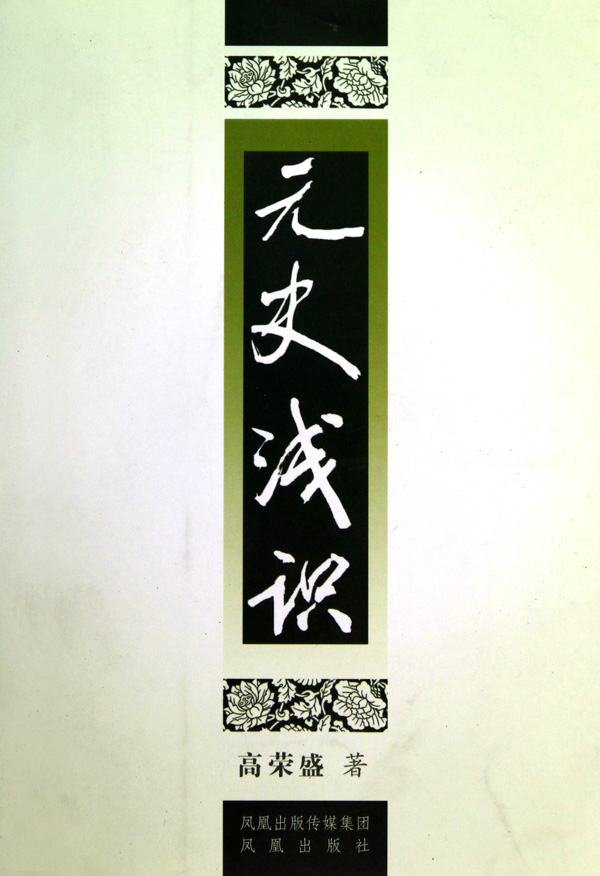 元史浅识
高荣盛 著
凤凰出版传媒集团
凤凰出版社